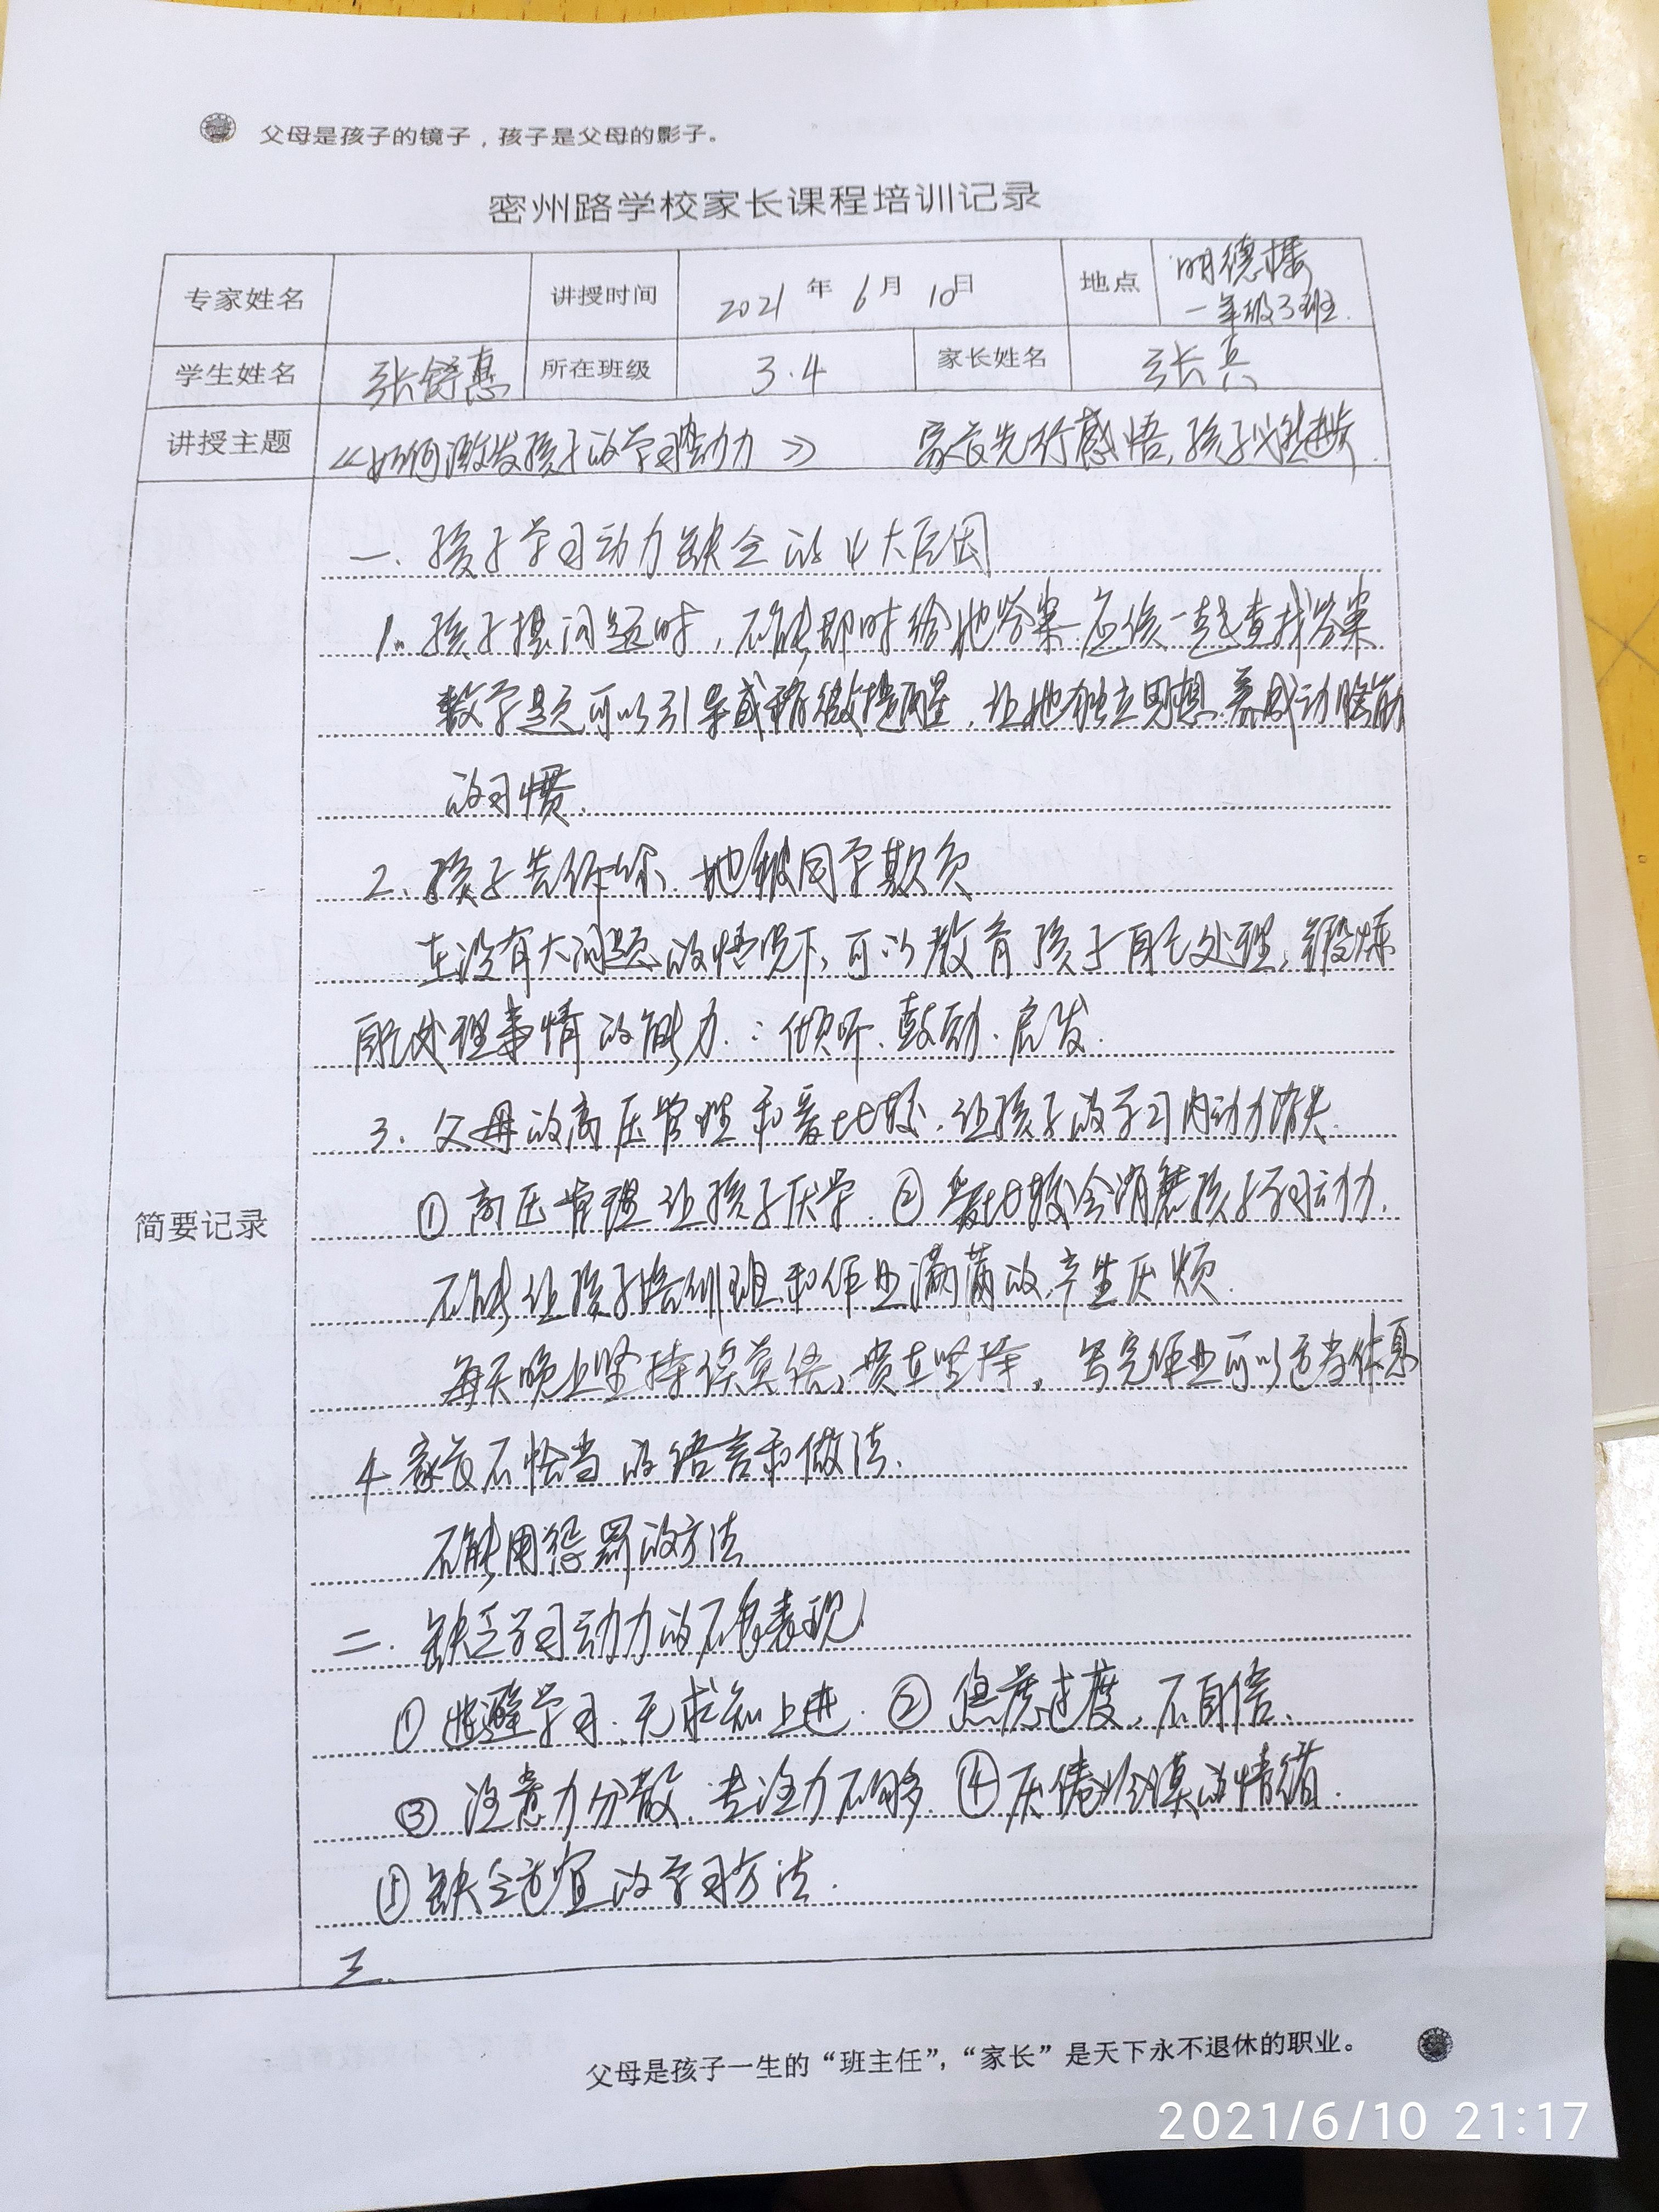 父母是孩子的镜子，孩子是父母的影子。
密州路学校家长课程培训记录
专家姓名 讲授时间 2021年6月10日 地点 明德楼
一年级3班.
学生姓名 张舒惠 所在班级 3.4 家长姓名 张兵
讲授主题 《如何激发孩子的学习动力》 家长先行感悟,孩子必然进步.
一.孩子学习动力缺乏的4大原因
1.孩子提问题时,不能即时给她答案.应该一起查找答案
数学题可以引导或稍微提醒,让她独立思想.养成动脑筋
的习惯.
2.孩子告诉你.她被同学欺负
在没有大问题的情况下,可以教育孩子自己处理,锻炼
自己处理事情的能力.:倾听.鼓励.启发.
3.父母的高压管理和爱比较.让孩子的学习内动力消失.
①高压管理让孩子厌学.②爱比较会消磨孩子学习动力.
不能让孩子培训班和作业满满的.产生厌烦.
每天晚上坚持读英语,贵在坚持。写完作业可以适当休息
简要记录
4.家长不恰当的语言和做法.
不能用惩罚的方法
二.缺乏学习动力的不良表现
①逃避学习.无求知上进.②焦虑过度,不自信.
③注意力分散.专注力不够.④厌倦冷漠的情绪.
⑤缺乏适宜的学习方法.
三.
父母是孩子一生的“班主任”,“家长”是天下永不退休的职业。
2021/6/10 21:17